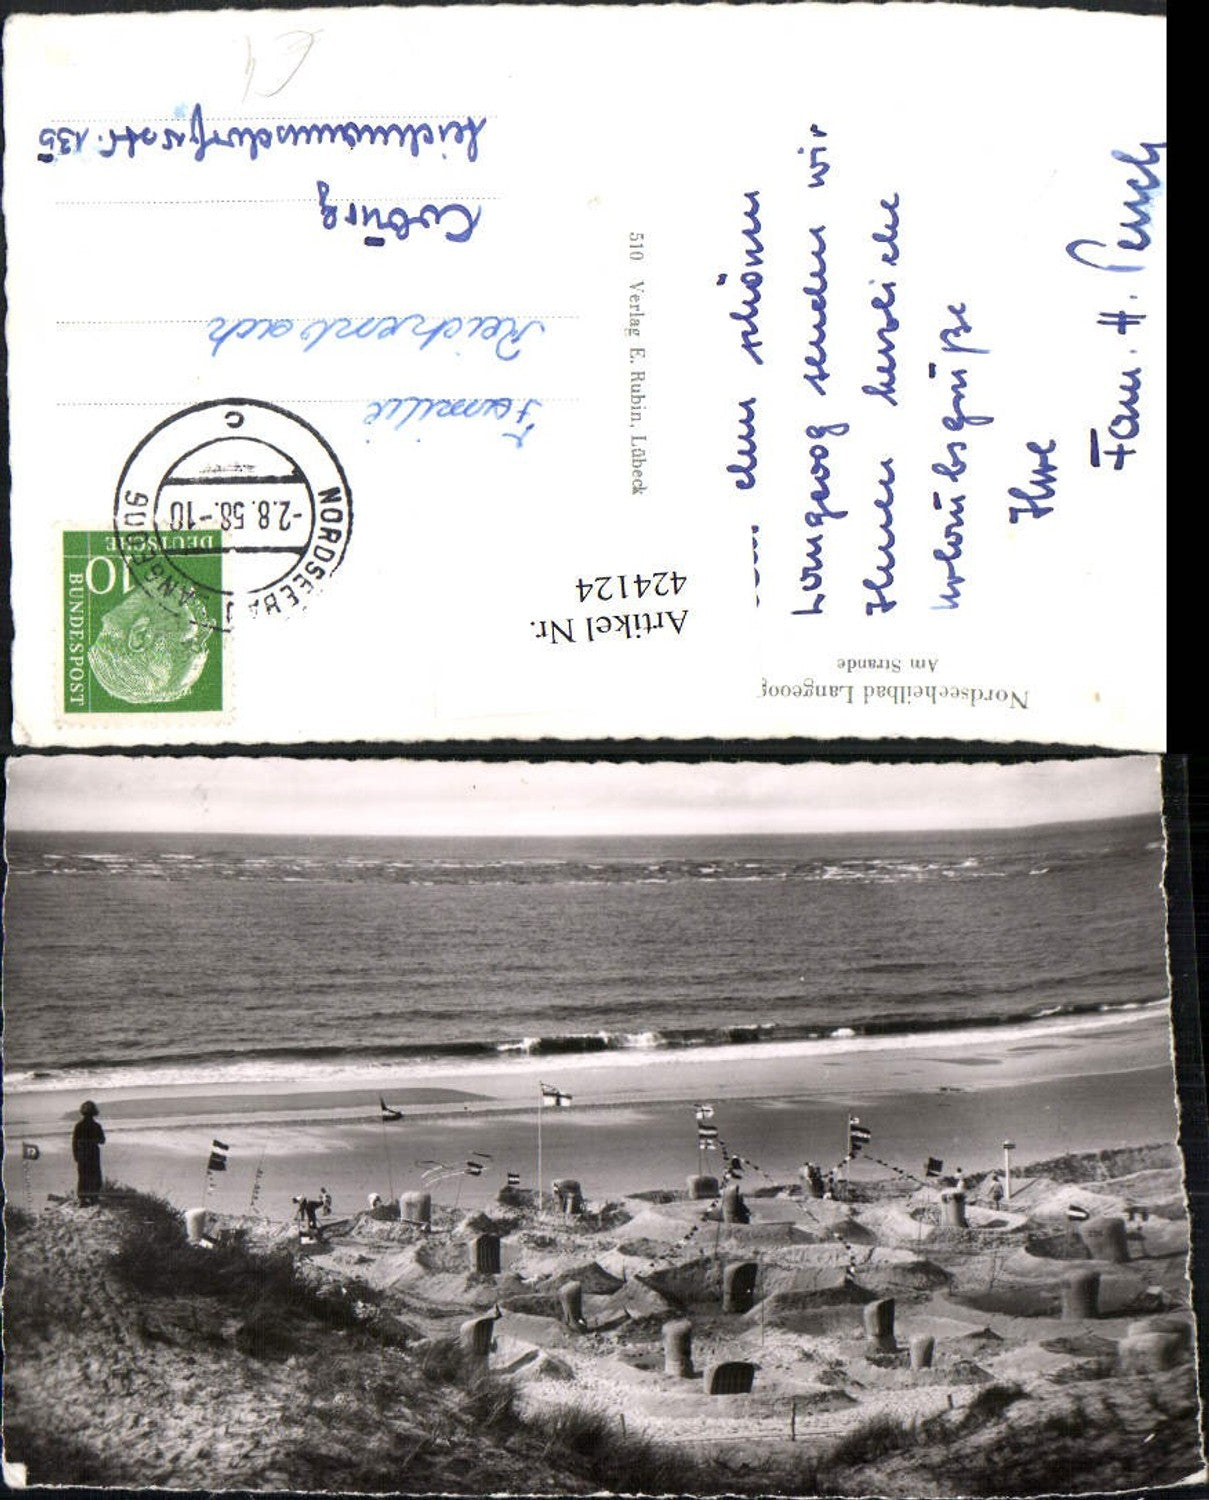 Nordseeheilbad Langeoog
Am Strande
Artikel Nr.
424124
510 Verlag E. Rubin, Lübeck
dem schönen
Langeoog senden wir
Ihnen herzliche
Urlaubsgrüße
Ihre
Fam. H.
DEUTSCHE
BUNDESPOST
10
NORDSEEBAD LANGEOOG
-2.8.58.-10
c
Familie
Reichenbach
Coburg
135